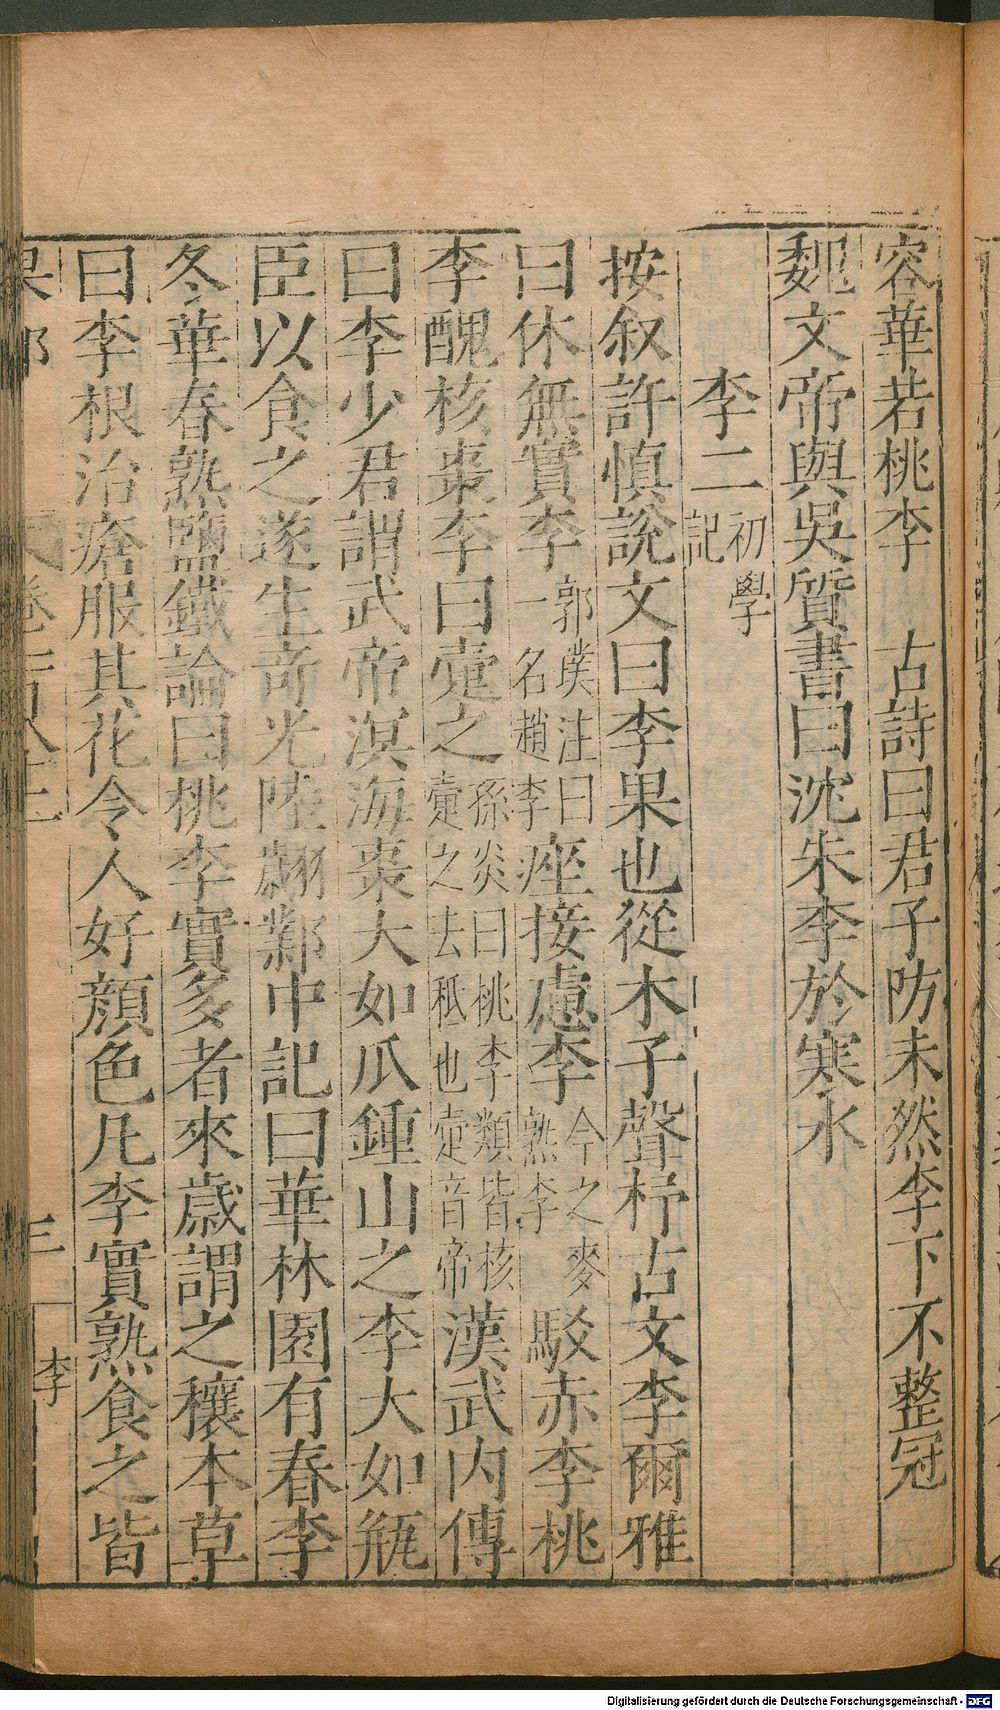 容華若桃李　古詩曰君子防未然李下不整冠
魏文帝與吳質書曰沈朱李於寒水
李二 初學記
按叙許慎說文曰李果也從木子聲杍古文李爾雅
曰休無實李 郭璞注曰一名趙李 痤接慮李 今之麥熟李 駁赤李桃
李醜核棗李曰疐之 孫炎曰桃李類皆核疐之去柢也疐音帝 漢武内傳
曰李少君謂武帝溟海棗大如瓜鍾山之李大如瓶
臣以食之遂生竒光陸翽鄴中記曰華林園有春李
冬華春熟鹽鐵論曰桃李實多者來歲謂之穰本草
曰李根治瘡服其花令人好顔色凡李實熟食之皆
三
李
Digitalisierung gefördert durch die Deutsche Forschungsgemeinschaft - DFG